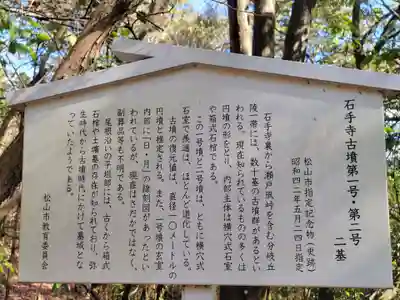 石手寺古墳第一号・第二号
二基
松山市指定記念物(史跡)
昭和四二年五月二四日指定
石手寺裏から瀬戸風峠を含む分岐丘
陵一帯には、数十基の古墳群があるとい
われる。現在知られているものの多くは
円墳の形をとり、内部主体は横穴式石室
や箱式石棺である。
この一号墳と二号墳は、ともに横穴式
石室で羨道は、ほとんど退化している。
古墳の復元値は、直径二〇メートルの
円墳と推定される。また、一号墳の玄室
内部に「日・月」の線刻図があったとい
われているが、現在はさだかではなく、
副葬品等も不明である。
尾根沿いの平坦部には、古くから箱式
石棺や土壙墓の存在が知られており、弥
生時代から古墳時代にかけて墓域とな
っていたようである。
松山市教育委員会